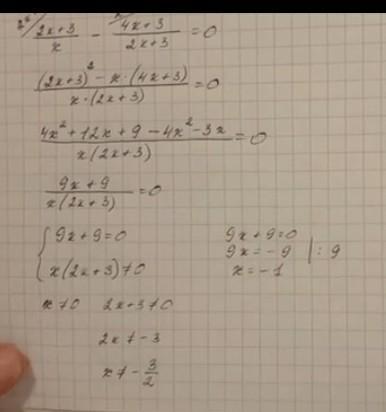 2x+3/ (2x+3)/x - x/ (4x+3)/(2x+3) = 0
((2x+3)² - x·(4x+3))/(x·(2x+3)) = 0
(4x²+12x+9-4x²-3x)/(x(2x+3)) = 0
(9x+9)/(x(2x+3)) = 0
{ 9x+9=0
x(2x+3)≠0
x≠0 2x+3≠0
2x≠-3
x≠-3/2
9x+9=0
9x=-9 |:9
x=-1